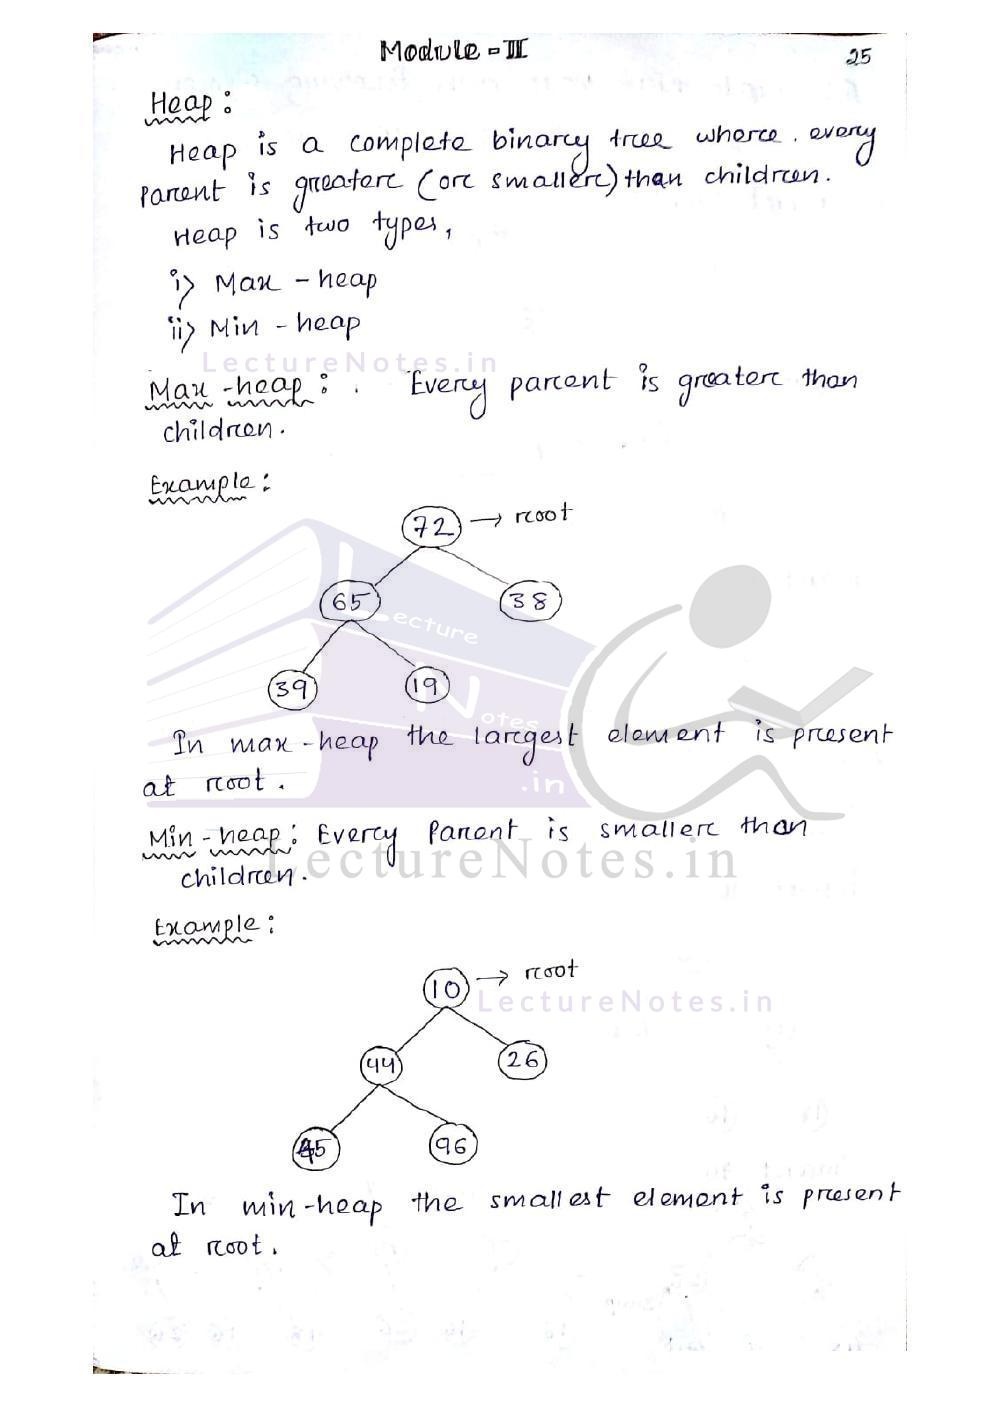 Module - III
25
Heap :
Heap is a complete binary tree where every
parent is greater (or smaller) than children.
Heap is two types,
i) Max - heap
ii) Min - heap
LectureNotes.in
Max - heap : Every parent is greater than
children.
Example :
72 → root
65 38
Lecture
39 19
Notes
In max - heap the largest element is present
at root.
.in
Min - heap : Every parent is smaller than
LectureNotes.in
children.
Example :
10 → root
LectureNotes.in
44 26
45 96
In min - heap the smallest element is present
at root.